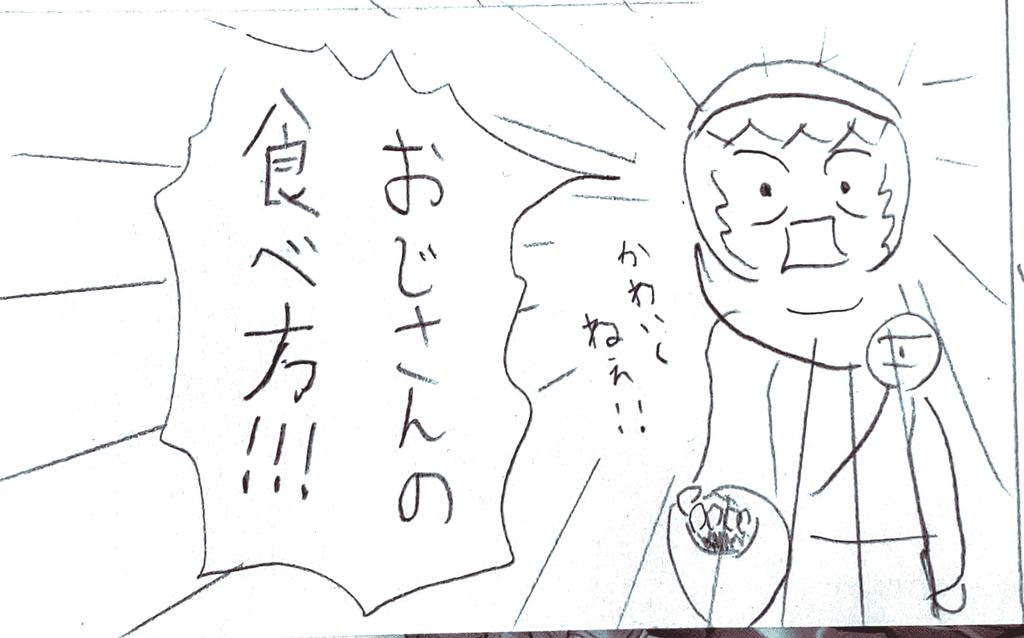 おじさんの
食べ方!!!
かわいく
ねえ!!